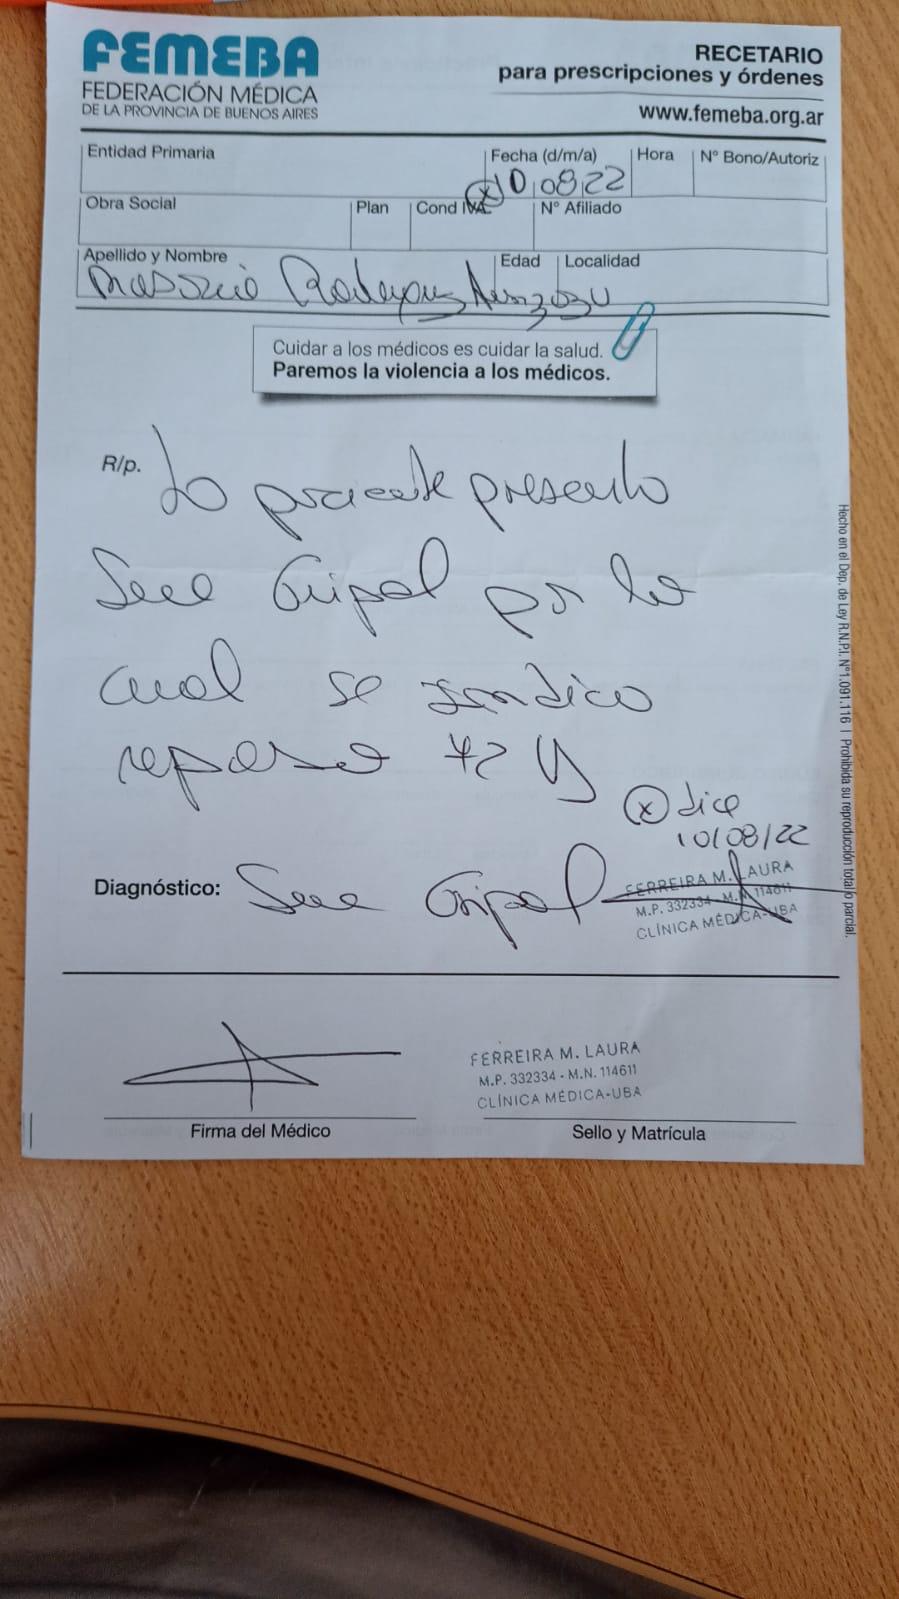 FEMEBA
FEDERACIÓN MÉDICA
DE LA PROVINCIA DE BUENOS AIRES
RECETARIO
para prescripciones y órdenes
www.femeba.org.ar
Entidad Primaria
Fecha (d/m/a)
Hora
N° Bono/Autoriz
(x) 10 08 22
Obra Social
Plan
Cond IVA
N° Afiliado
Apellido y Nombre
Edad
Localidad
Cuidar a los médicos es cuidar la salud.
Paremos la violencia a los médicos.
R/p. La paciente presento
Gripal por lo
cual se indico
reposo 72
(x) dice
10/08/22
Diagnóstico: Gripal
FERREIRA M. LAURA
M.P. 332334 - M.N. 114611
CLÍNICA MÉDICA-UBA
FERREIRA M. LAURA
M.P. 332334 - M.N. 114611
CLÍNICA MÉDICA-UBA
Firma del Médico
Sello y Matrícula
Hecho en el Dep. de Ley R.N.P.I. N°1.091.116 | Prohibida su reproducción total o parcial.